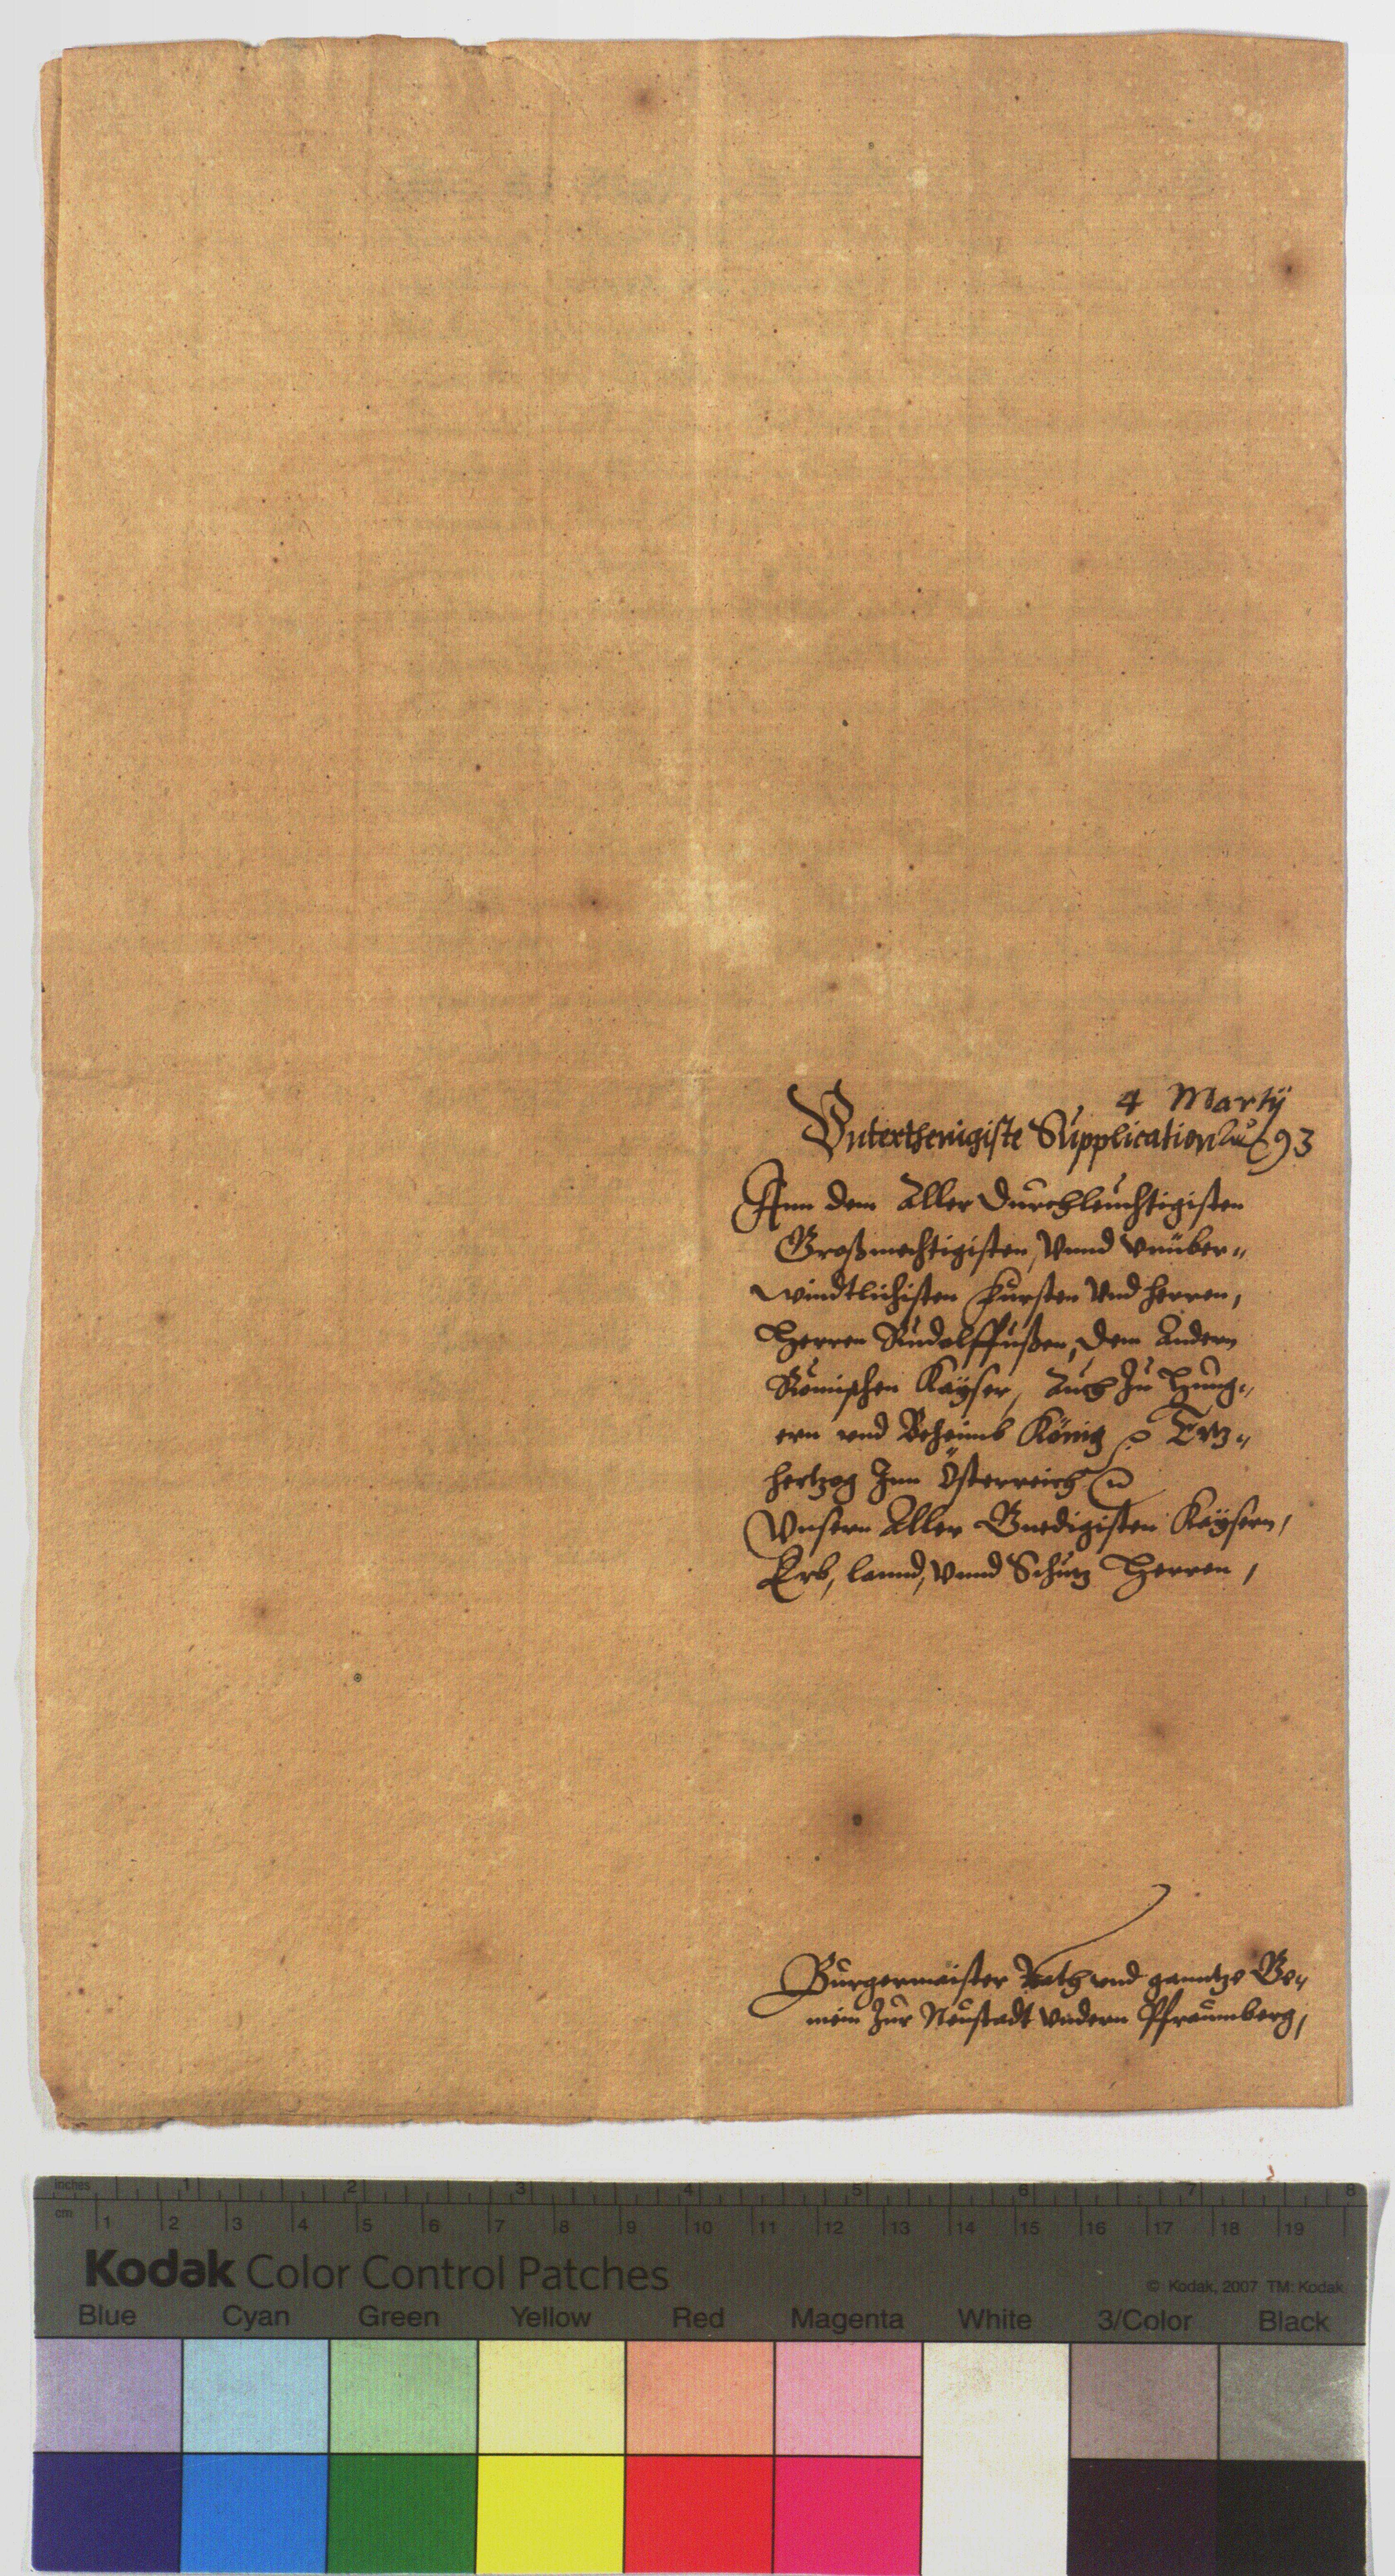 4 Martÿ
Vnterthenigiste Supplication 93
Ann dem Aller Durchleuchtigisten
Großmechtigisten, Vnnd vnüber„
windtlichisten Fürsten Vnd herren,
Herren Rudolffußen, dem Andern
Römischen Kaÿser, Auch Zu Hung„
ern vnd Beheimb König Ertz„
hertzog Inn Österreich
Vnsern Aller Gnedigisten Kaÿsern,
Erb, lannd, Vnnd Schutz Herren,
Burgermaister Rath vnd ganntze Ge„
mein Zur Neustadt vndern Pfraumberg,
inches 1 2 3 4 5 6 7 8
cm 1 2 3 4 5 6 7 8 9 10 11 12 13 14 15 16 17 18 19
Kodak Color Control Patches
© Kodak, 2007 TM: Kodak
Blue Cyan Green Yellow Red Magenta White 3/Color Black